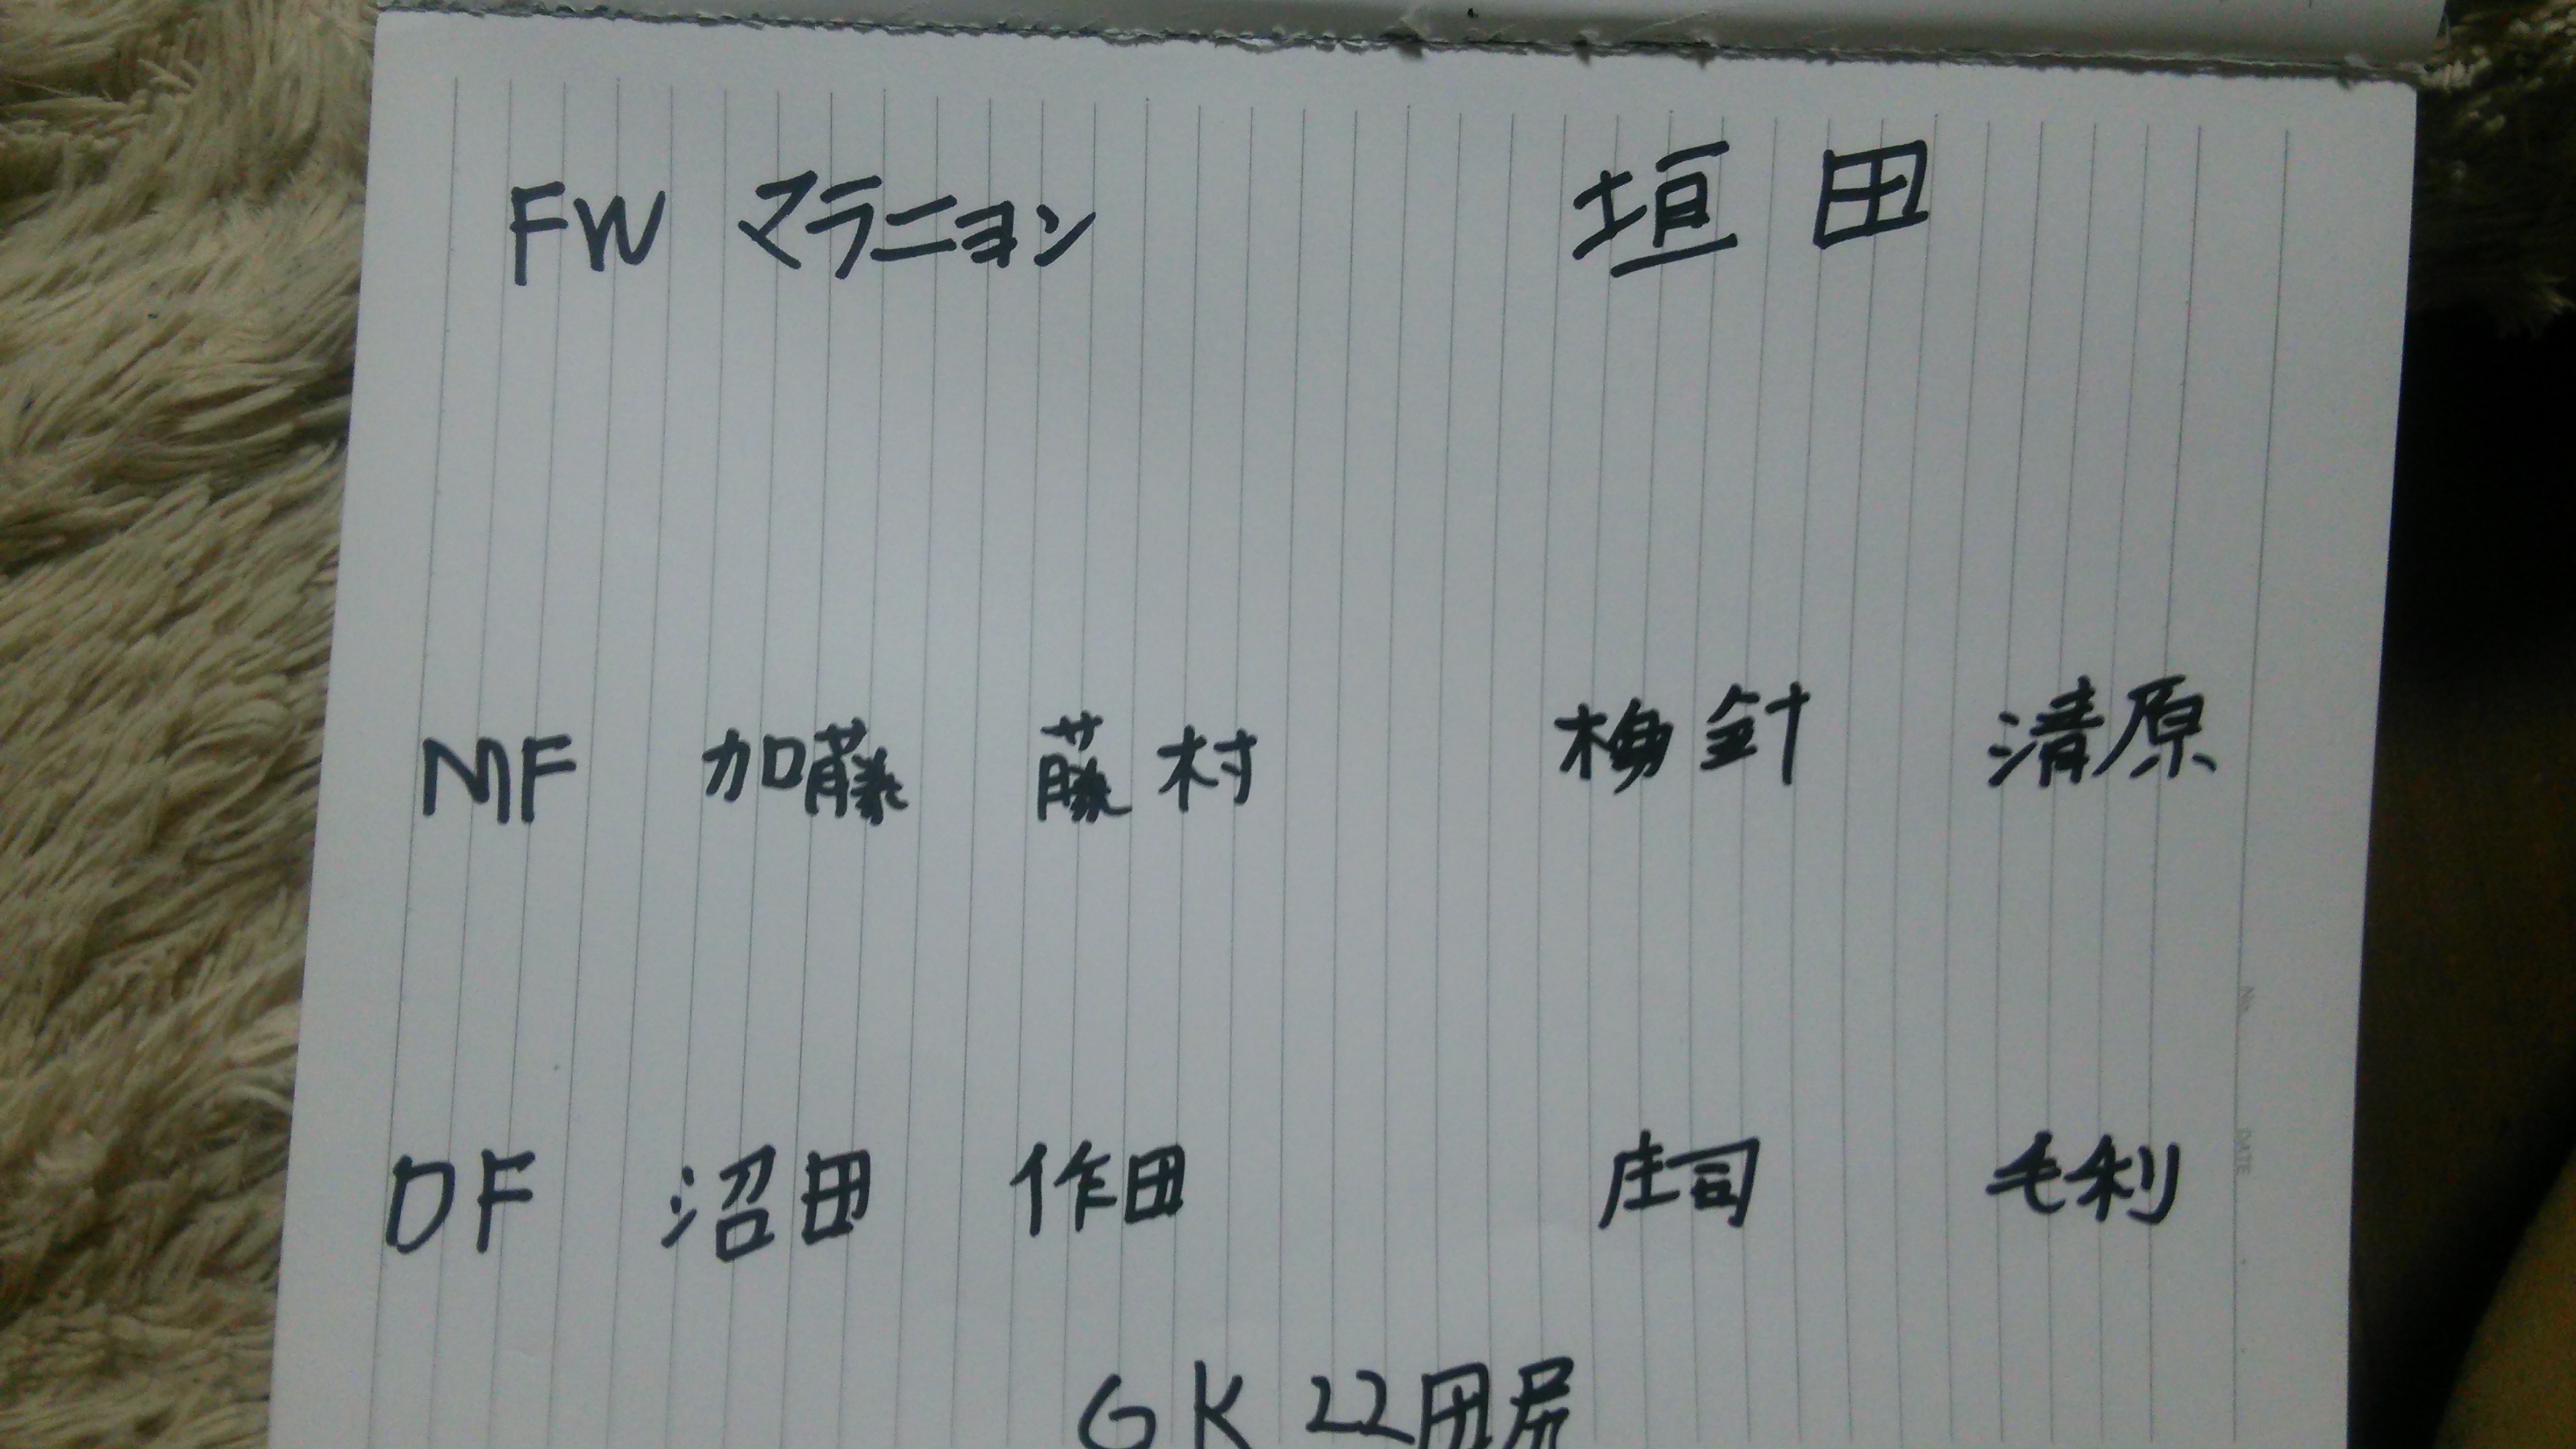 FW マラニヨン 垣田
MF 加藤 藤村 梅針 清原
DF 沼田 作田 庄司 毛利
GK 22田尻
No.
DATE